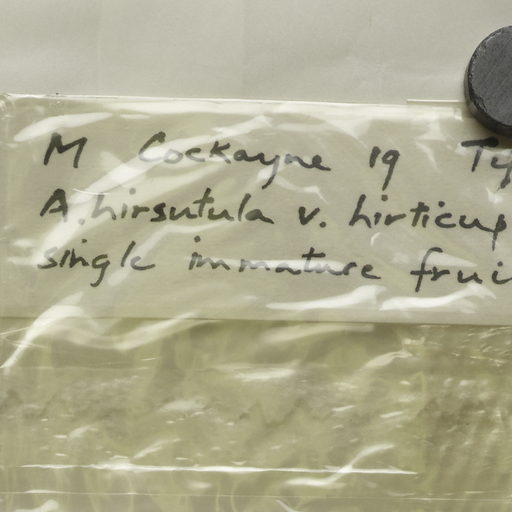 M Cockayne 19 Ty
A. hirsutula v. hirticup
single immature frui